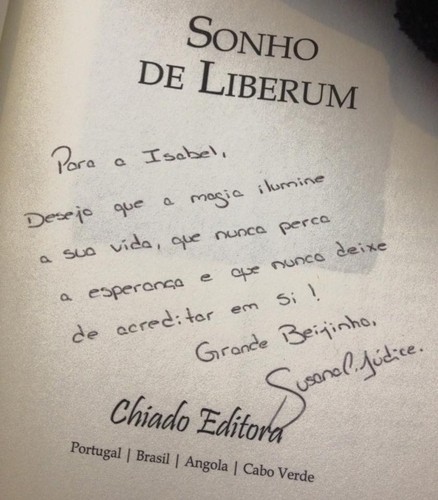 SONHO
DE LIBERUM
Para a Isabel,
Desejo que a magia ilumine
a sua vida, que nunca perca
a esperança e que nunca deixe
de acreditar em si!
Grande Beijinho,
Susana C. Júdice.
Chiado Editora
Portugal | Brasil | Angola | Cabo Verde